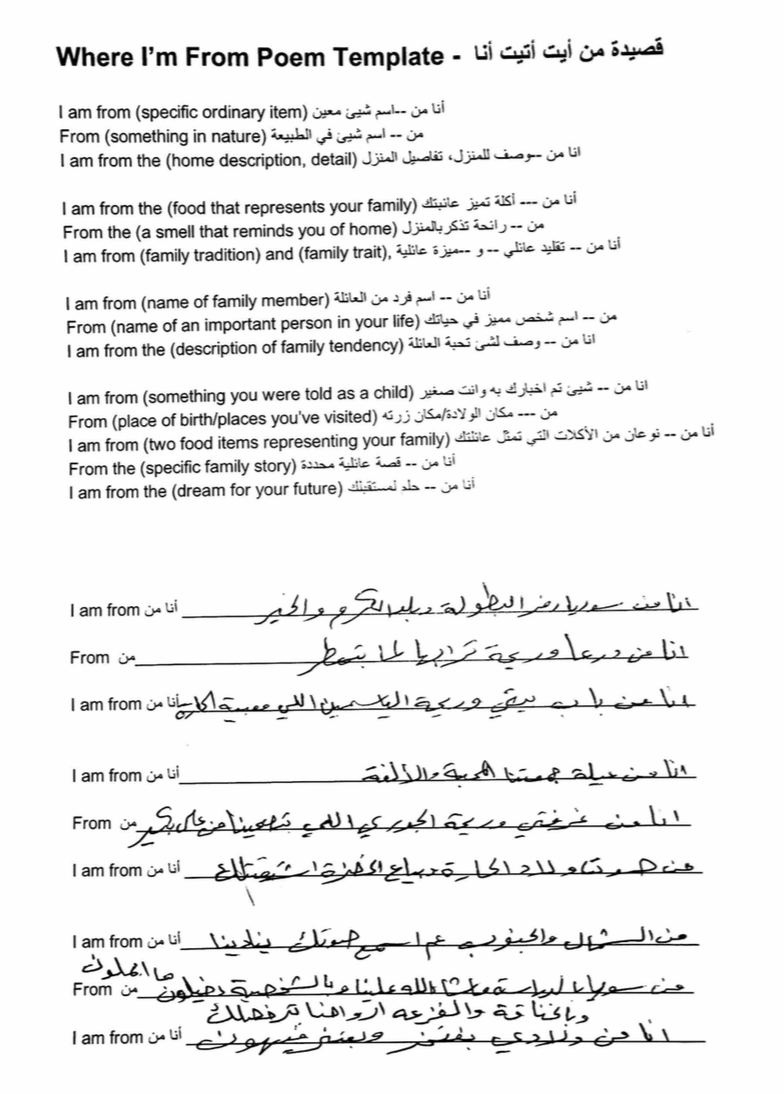 Where I'm From Poem Template - قصيدة من أيت أتيت أنا
I am from (specific ordinary item) أنا من --اسم شيئ معين
From (something in nature) من -- اسم شيئ في الطبيعة
I am from the (home description, detail) انا من --وصف للمنزل، تفاصيل المنزل
I am from the (food that represents your family) أنا من --- أكلة تميز عائيتك
From the (a smell that reminds you of home) من -- رائحة تذكر بالمنزل
I am from (family tradition) and (family trait), أنا من -- تقليد عائلي -- و --ميزة عائلية
I am from (name of family member) أنا من -- اسم فرد من العائلة
From (name of an important person in your life) من -- اسم شخص مميز في حياتك
I am from the (description of family tendency) انا من -- وصف لشئ تحبة العائلة
I am from (something you were told as a child) انا من -- شيئ تم اخبارك به وانت صغير
From (place of birth/places you've visited) من --- مكان الولادة/مكان زرته
I am from (two food items representing your family) أنا من -- نوعان من الأكلات التي تمثل عائلتك
From the (specific family story) أنا من -- قصة عائلية محددة
I am from the (dream for your future) أنا من -- حلم لمستقبلك
I am from أنا من انا من سوريا رمز البطولة وبلد الكرم والخير
From من انا من درعا وريحة ترابها لما بتمطر
I am from أنا من انا من باب بيتي وريحة الياسمين اللي معبية الحارة
I am from أنا من انا من عيلة جمعتنا المحبة والألفة
From من انا من غرفتي وريحة الجوري اللي بتصحينا من على بكير
I am from أنا من من صوت ولاد الحارة وبياع الخضرة اشتقتلك
I am from أنا من من الشمال والجنوب عم اسمع صوتك ينادينا
From من من سوريا الدراسة ماشاء الله علينا وبالشخصية دخيلون ما احلون
وبالخناقة والفزعه ارواحنا بترخصلك
I am from أنا من انا من ولادي بفتخر وبعتز فيهون